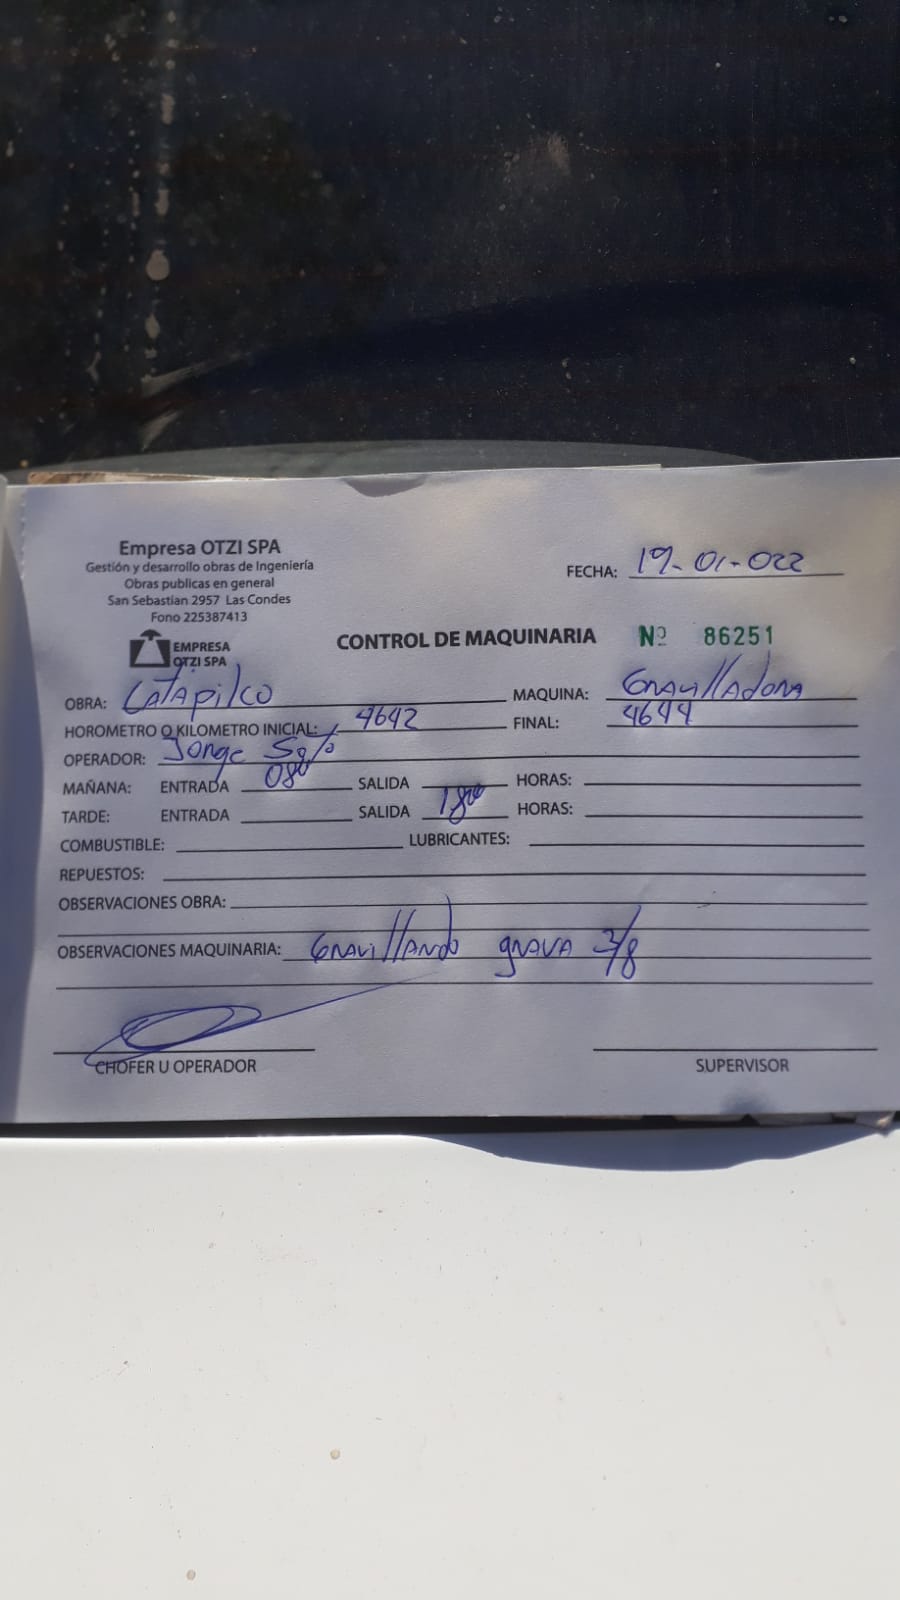 Empresa OTZI SPA
Gestión y desarrollo obras de Ingeniería
Obras publicas en general
San Sebastian 2957 Las Condes
Fono 225387413
EMPRESA
OTZI SPA
FECHA: 19-01-022
CONTROL DE MAQUINARIA Nº 86251
OBRA: Catapilco MAQUINA: Gravilladora
HOROMETRO O KILOMETRO INICIAL: 4642 FINAL: 4644
OPERADOR: Jorge
MAÑANA: ENTRADA 0800 SALIDA HORAS:
TARDE: ENTRADA SALIDA 1800 HORAS:
COMBUSTIBLE: LUBRICANTES:
REPUESTOS:
OBSERVACIONES OBRA:
OBSERVACIONES MAQUINARIA: Gravillando grava 3/8
CHOFER U OPERADOR SUPERVISOR